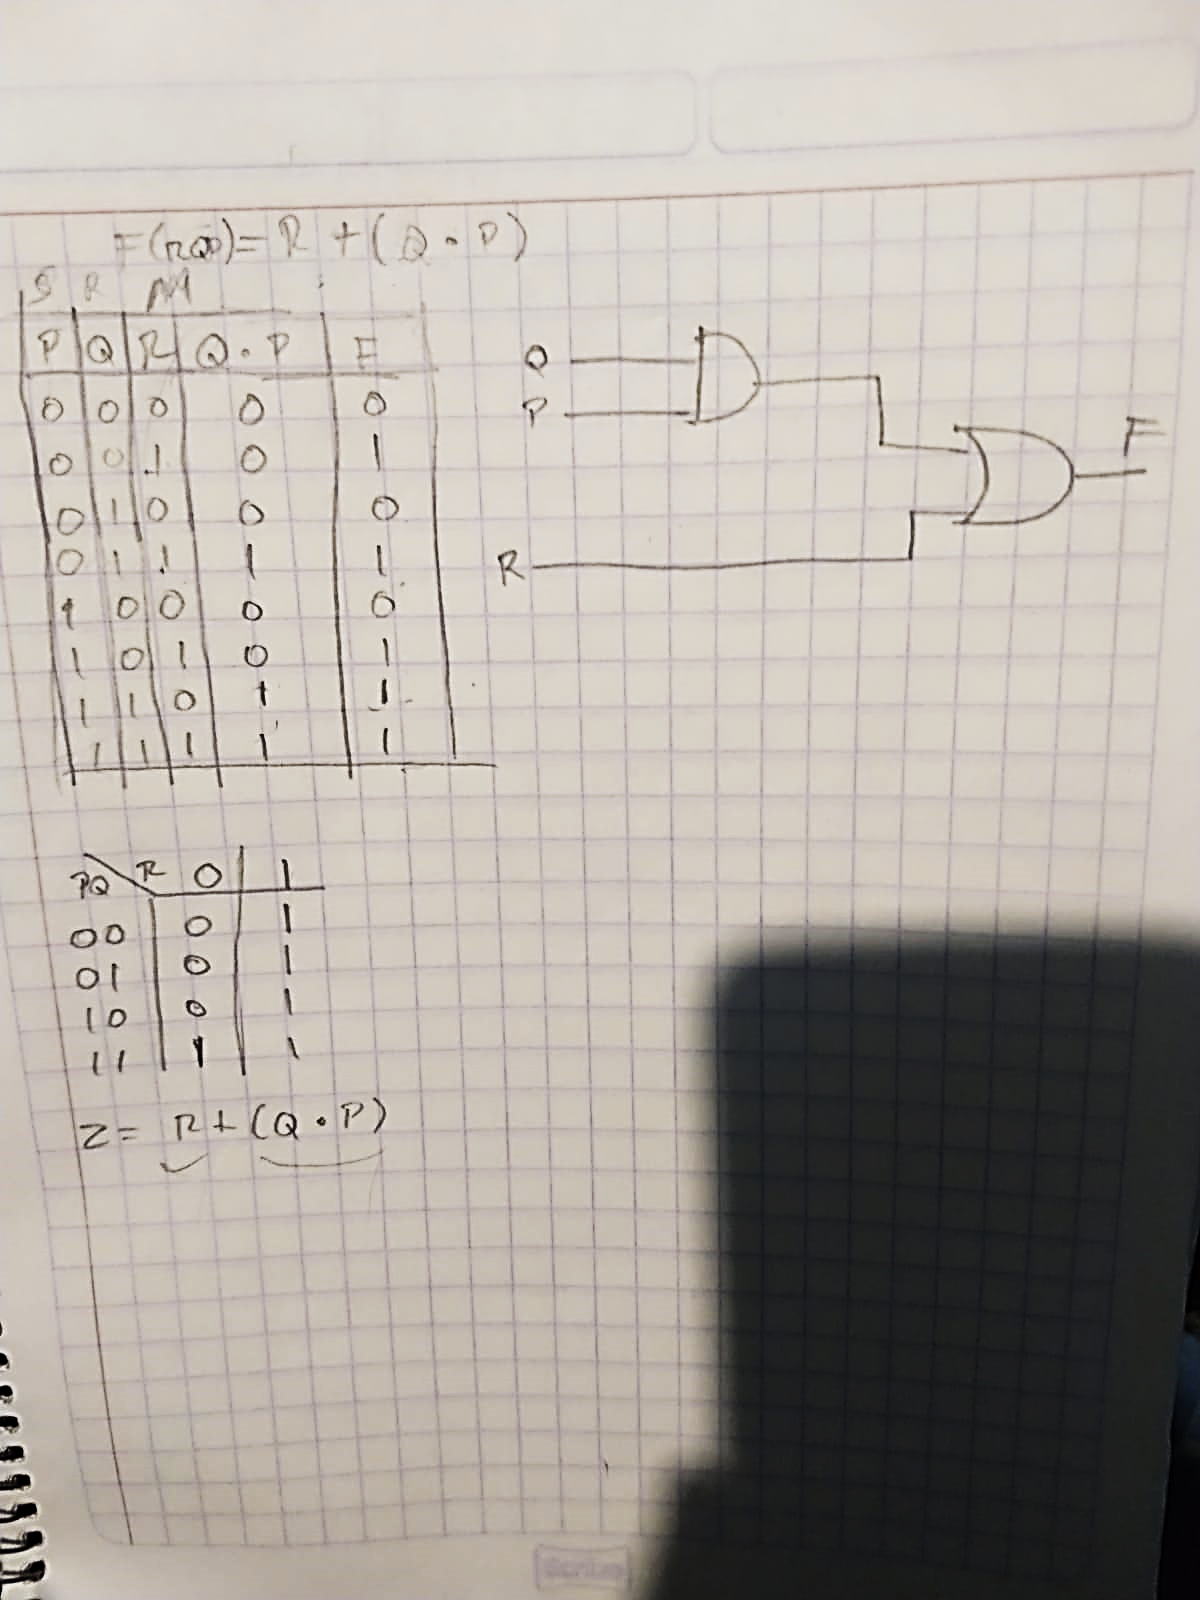 F(RQP)= R + (Q • P)
S R M
P Q R Q • P F
0 0 0 0 0
0 0 1 0 1
0 1 0 0 0
0 1 1 1 1
1 0 0 0 0
1 0 1 0 1
1 1 0 1 1
1 1 1 1 1
Q
P
R
F
PQ R 0 1
00 0 1
01 0 1
10 0 1
11 1 1
Z= R+(Q • P)
Scribe